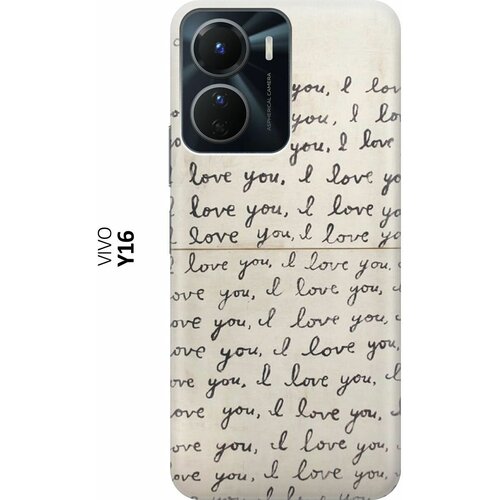 VIVO
Y16
ASPHERICAL CAMERA
you, I lov
you, I lo
you, I love
love you, I love yo
love you, I love y
I love you, I love yo
I love you, I love you,
ove you, I love you
ove you, I love you,
ove you, I love you,
ove you, I love you,
love you, I love you,
ove you, I love you,
love you, I love you